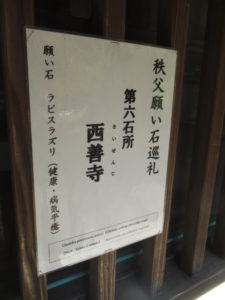 秩父願い石巡礼
第六石所
さいぜんじ
西善寺
願い石　ラピスラズリ（健康・病気平癒）